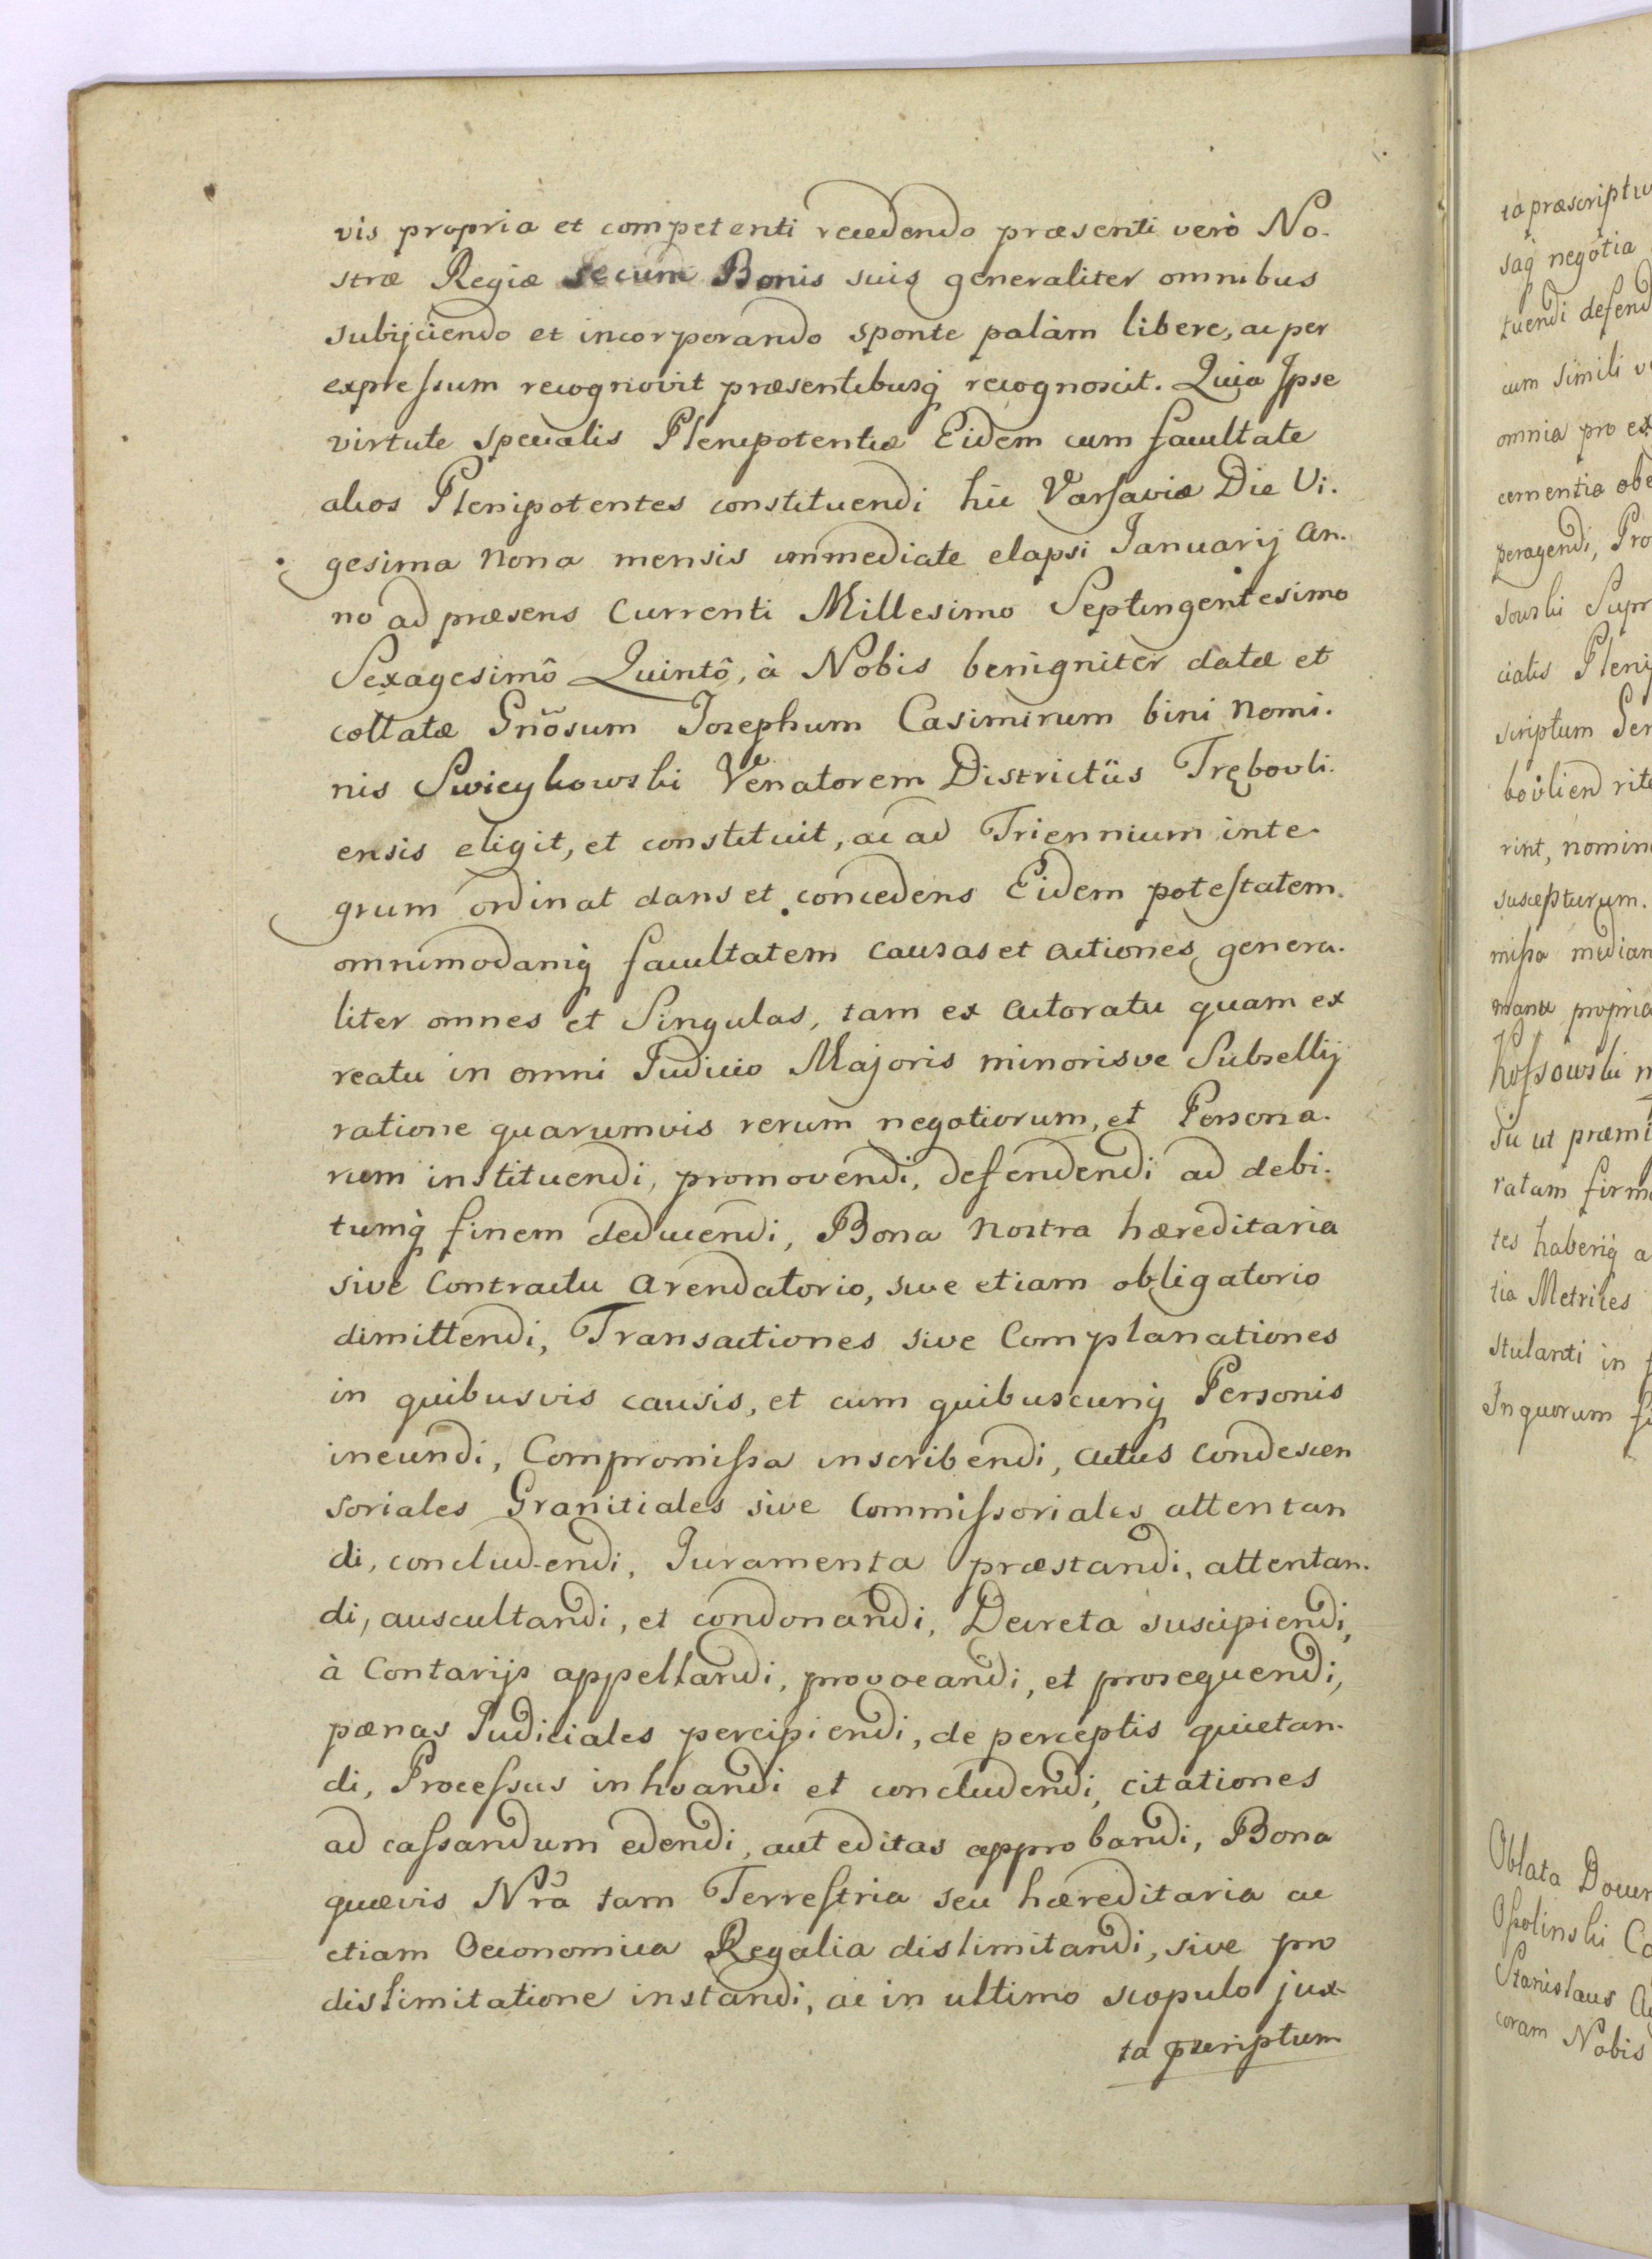 vis propria et competenti recedendo præsenti verò No-
stræ Regiæ secum Bonis suisq generaliter omnibus
subijciendo et incorporando sponte palàm libere, ac per
expressum recognovit præsentibusq recognoscit. Quia Ipse
virtute specialis Plenipotentiæ Eidem cum facultate
alios Plenipotentes constituendi hic Varsaviæ Die Vi-
gesima Nona mensis immediate elapsi Januarij An-
no ad præsens Currenti Millesimo Septingentesimo
Sexagesimô Quintô, à Nobis benigniter datæ et
collatæ Gñosum Josephum Casimirum bini Nomi-
nis Swieykowski Venatorem Districtûs Trębovli-
ensis eligit, et constituit, ac ad Triennium inte-
grum ordinat dans et concedens Eidem potestatem
omnimodamq facultatem causas et actiones genera-
liter omnes et Singulas, tam ex Actoratu quam ex
reatu in omni Judicio Majoris minorisve Subsellij
ratione quarumvis rerum negotiorum, et Persona-
rum instituendi, promovendi, defendendi ad debi-
tumq finem deducendi, Bona Nostra hæreditaria
sive Contractu Arendatorio, sive etiam obligatorio
dimittendi, Transactiones sive Complanationes
in quibusvis causis, et cum quibuscunq Personis
ineundi, Compromissa inscribendi, Actus Condescen
soriales Granitiales sive Commissoriales attentan
di, concludendi, Juramenta præstandi, attentan-
di, auscultandi, et condonandi, Decreta suscipiendi,
à Contarijs appellandi, provocandi, et prosequendi,
pænas Judiciales percipiendi, de perceptis quietan-
di, Processus inhoandi et concludendi, citationes
ad cassandum edendi, aut editas approbandi, Bona
quævis Nrã tam Terrestria seu hæreditaria ac
etiam Oeconomica Regalia dislimitandi, sive pro
dislimitatione instandi, ac in ultimo scopulo jux-
ta
ta præscriptu
saq negotia
tuendi defend
cum simili
omnia pro ex
cementia obe
peragendi, Pro
sowski Supr
cialis Pleni
scriptum Ser
bovlien rite
rint, nomin
suscepturum.
missa median
manu propria
Kossowski
Su ut præmi
ratam firm
tes haberiq a
tia Metrices
stulanti in
In quorum fi
Oblata Docu
Ossolinski Ca
Stanislaus Au
coram Nobis